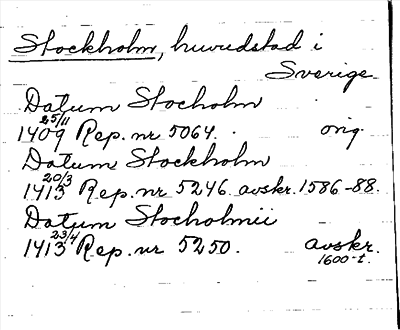 Stockholm, huvudstad i
Sverige
Datum Stocholm
1409 25/11 Rep. nr 5064. orig.
Datum Stockholm
1413 20/3 Rep. nr 5246. avskr. 1586-88.
Datum Stocholmii
1413 23/4 Rep. nr 5250. avskr.
1600-t.